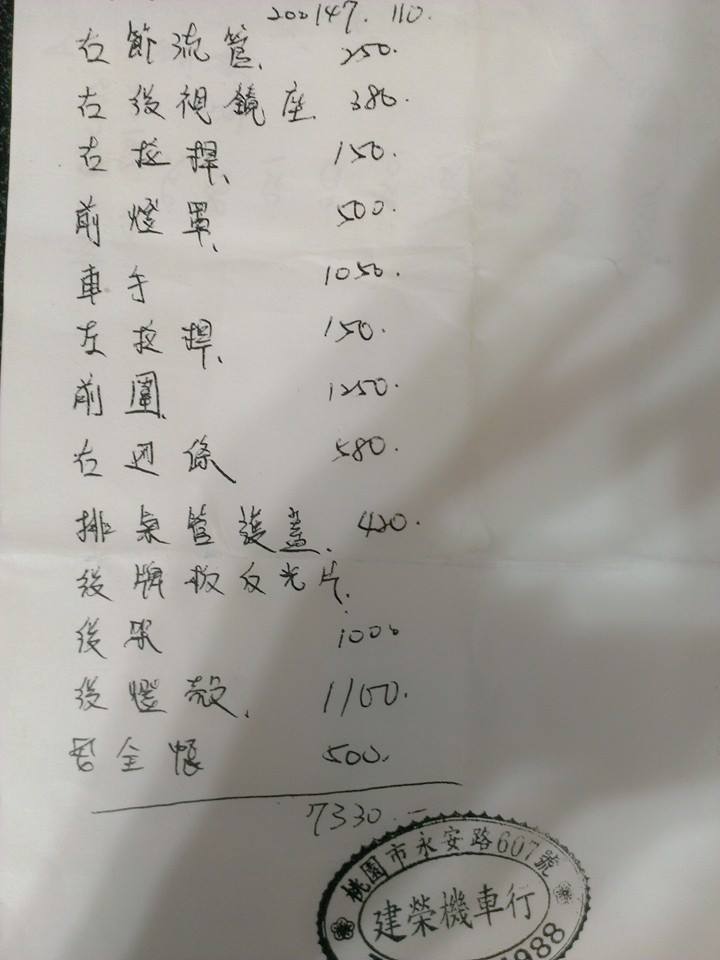 200147. 110.
右節流管. 250.
右後視鏡座 380.
右拉捍. 150.
前燈罩. 500.
車手 1050.
左拉捍. 150.
前圍. 1250.
右迊條 580.
排氣管護蓋. 420.
後牌板反光片.
後架 1000
後燈殼. 1100.
安全帳 500.
7330.-
桃園市永安路607號
建榮機車行
988